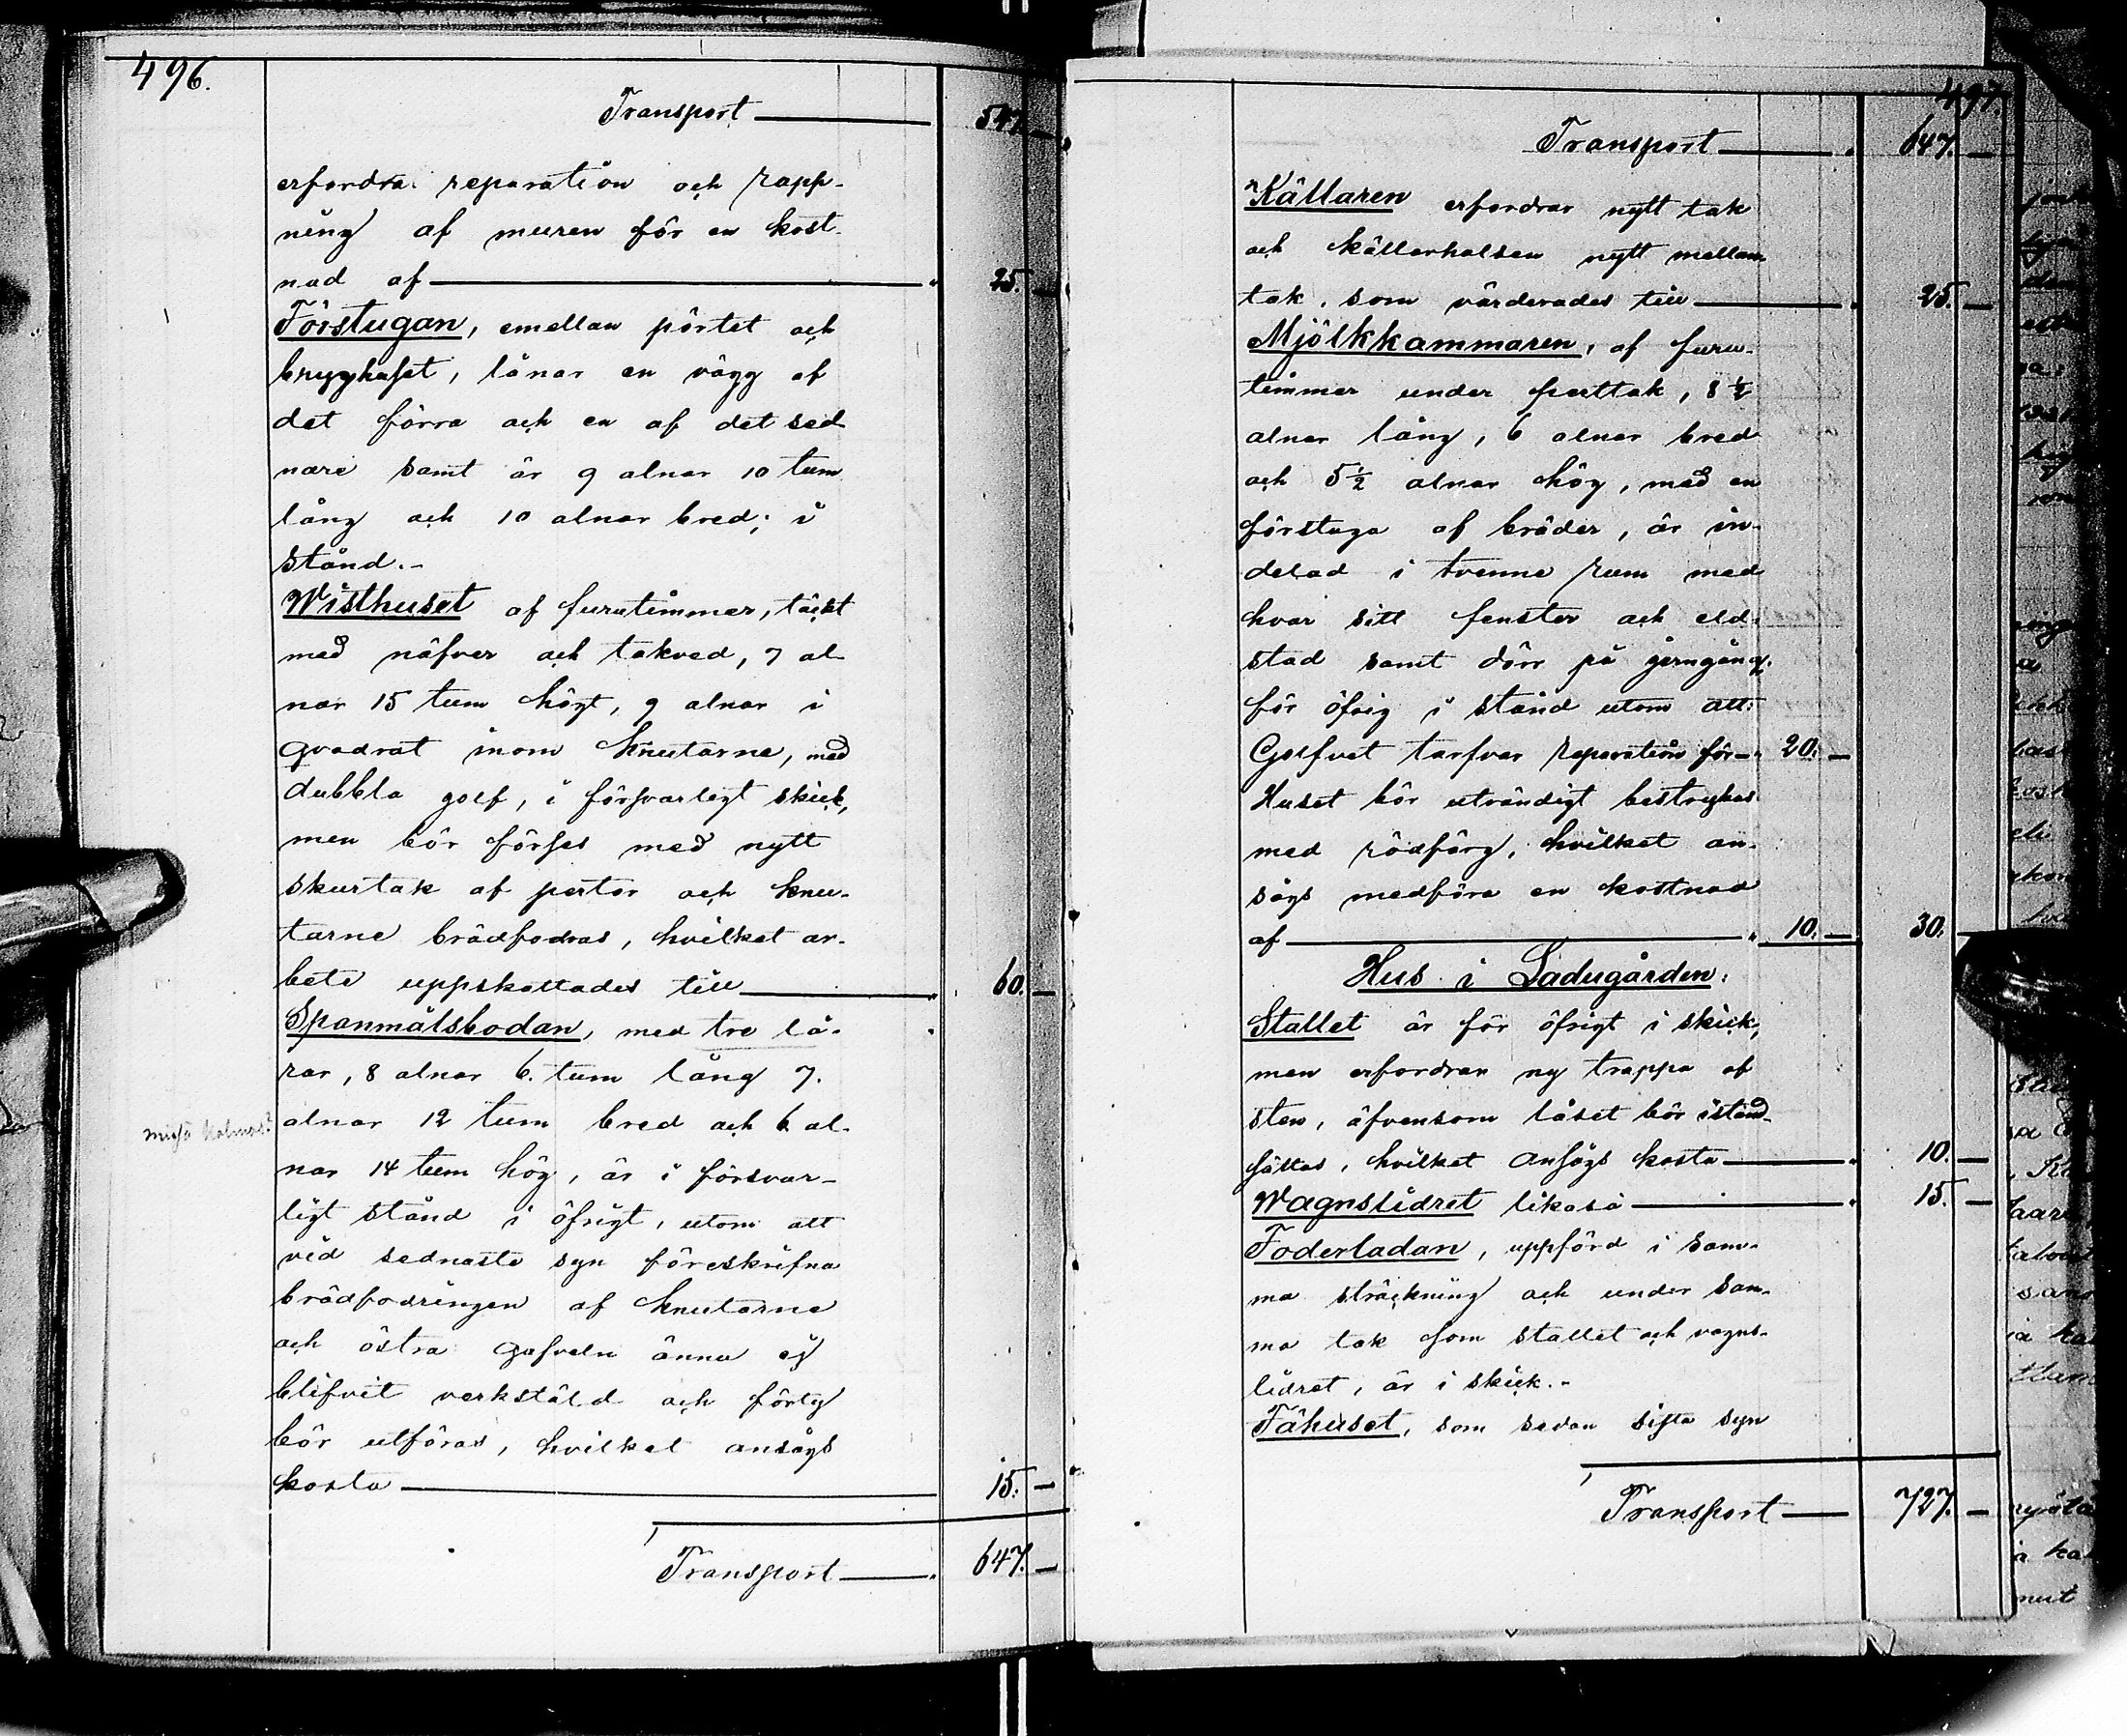 496.
Transport 547. —
erfordra reparation och rapp-
ning af muren för en kost-
nad af 25. —
Förstugan, emellan pörtet och
brygghuset, lånar en vägg af
det förra och en af det sed
nare samt är 9 alnar 10 tum
lång och 10 alnar bred; i
stånd.-
Wisthuset af furutimmer, täckt
med näfver och takved, 7 al-
nar 15 tum högt, 9 alnar i
qvadrat inom knutarne, med
dubbla golf, i försvarligt skick,
men bör förses med nytt
skurtak af pertor och knu-
tarne brädfodras, hvilket ar-
bete uppskattades till 60. —
Spanmålsbodan, med tre lå-
rar, 8 alnar 6. tum lång 7.
missä kolmas?
alnar 12 tum bred och 6 al-
nar 14 tum hög, är i försvar-
ligt stånd i öfrigt, utom att
vid sednaste syn föreskrifna
brädfodringen af knutarne
och östra gafveln ännu ej
blifvit verkstäld och förty
bör utföras, hvilket ansågs
kosta 15. —
Transport 647. —
497.
Transport 647. —
Källaren erfordrar nytt tak
och källarhalsen nytt mellan-
tak, som värderades till 25. —
Mjölkkammaren, af furu-
timmer under perttak, 8 ½
alnar lång, 6 alnar bred
och 5½ alnar hög, med en
förstuga af bräder, är in-
delad i tvenne rum med
hvar sitt fenster och eld-
stad samt dörr på gerngång,
för öfrig i stånd utom att
Golfvet tarfvar reparation för 20. —
Huset bör utvändigt bestrykas
med rödfärg, hvilket an-
sågs medföra en kostnad
af 10. — 30. —
Hus i Ladugården:
Stallet är för öfrigt i skick,
men erfordrar ny trappa af
sten, äfvensom låset bör istånd-
sättas, hvilket ansågs kosta 10. —
Wagnslidret likaså 15. —
Foderladan, uppförd i sam-
ma sträckning och under sam-
ma tak som stallet och vagns-
lidret, är i skick.-
Fähuset, som sedan sista syn
Transport 727. —